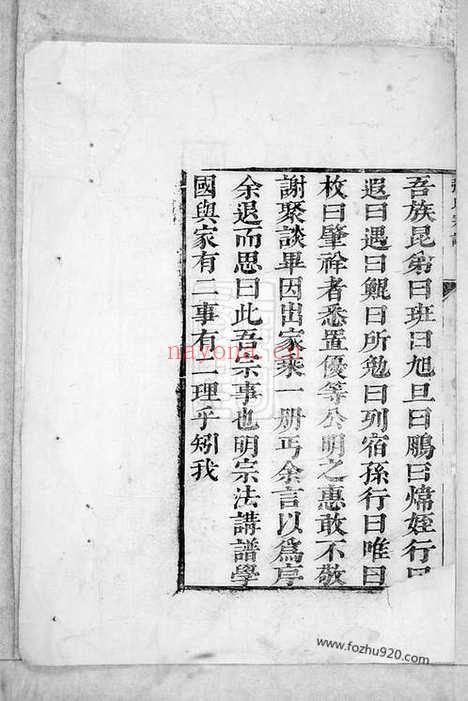 吾族昆弟曰班曰旭旦曰鵬曰煒姪行曰
遐曰遇曰鯤曰所勉曰列宿孫行曰唯曰
枚曰肇祥者悉置優等公明之惠敢不敬
謝聚談畢因出家乘一册丐余言以爲序
余退而思曰此吾宗事也明宗法講譜學
國與家有二事有二理乎矧我
nayona.cn
www.fozhu920.com